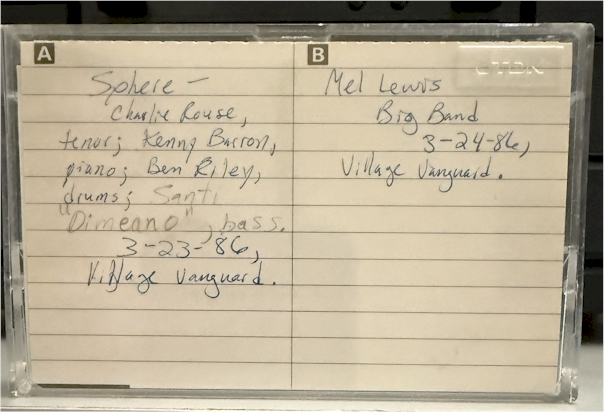 A
Sphere –
Charlie Rouse,
tenor; Kenny Barron,
piano; Ben Riley,
drums; Santi
"Dimeano", bass.
3-23-86,
Village Vanguard.
B
TDK
Mel Lewis
Big Band
3-24-86,
Village Vanguard.